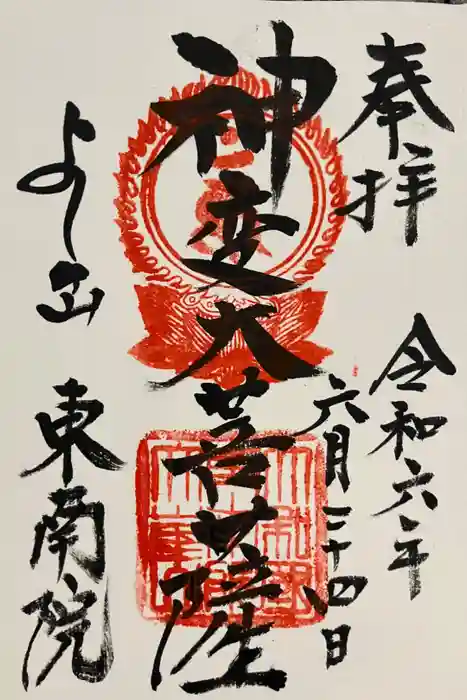 奉拝
令和六年
六月二十四日
神変大菩薩
よし山
東南院